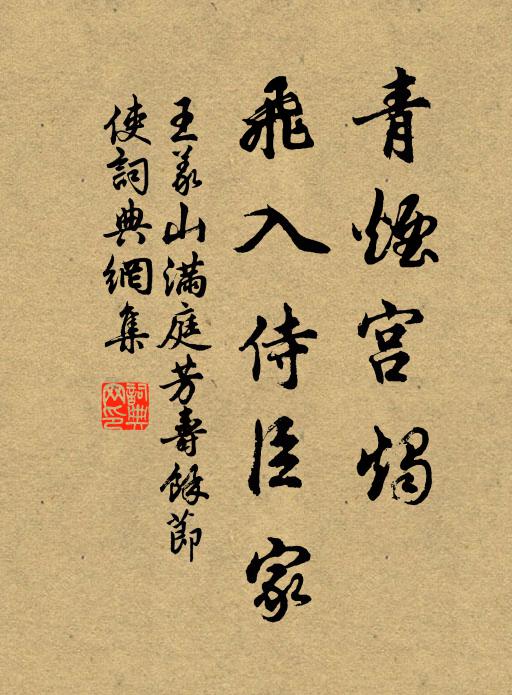 青煙宮燭
飛入侍臣家
王義山滿庭芳壽餘節
使詞典網集
詞典
网印